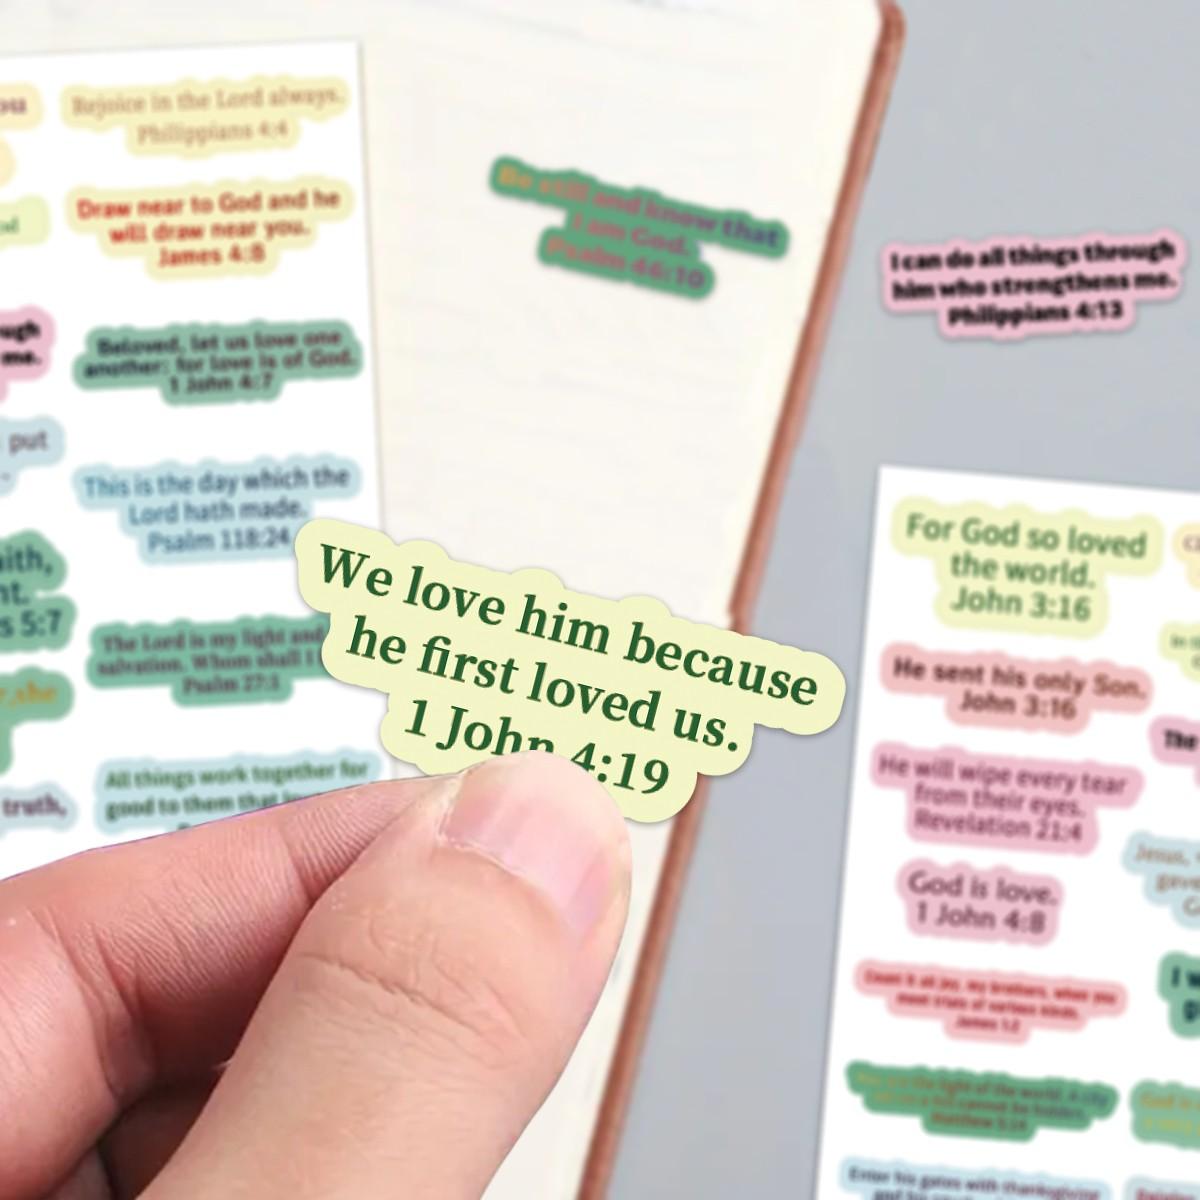 ou
Rejoice in the Lord always.
Philippians 4:4
Draw near to God and he
will draw near you.
James 4:8
ugh
me.
Beloved, let us love one
another: for love is of God.
1 John 4:7
put
This is the day which the
Lord hath made.
Psalm 118:24
aith,
nt.
s 5:7
The Lord is my light and
salvation. Whom shall I
Psalm 27:1
r,she
truth,
All things work together for
good to them that
Be still and know that
I am God.
Psalm 46:10
I can do all things through
him who strengthens me.
Philippians 4:13
We love him because
he first loved us.
1 John 4:19
For God so loved
the world.
John 3:16
He sent his only Son.
John 3:16
He will wipe every tear
from their eyes.
Revelation 21:4
God is love.
1 John 4:8
Count it all joy, my brothers, when you
meet trials of various kinds.
James 1:2
the light of the world. A city
cannot be hidden.
Matthew 5:14
Enter his gates with thanksgiving
The
Jesus,
I w
God is